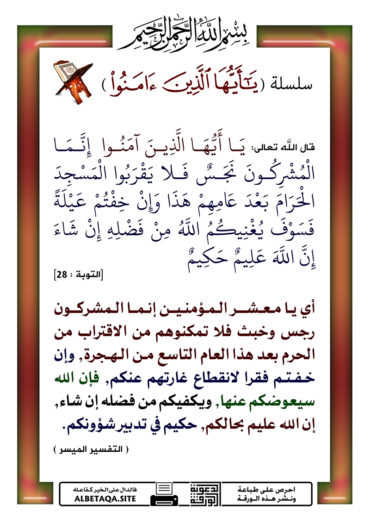 بسم الله الرحمن الرحيم
سلسلة ( يَـٰٓأَيُّهَا ٱلَّذِينَ ءَامَنُوا۟ )
قال الله تعالى: يَـا أَيُّهَـا الَّذِيـنَ آمَنُـوا إِنَّـمَـا
الْمُشْرِكُـونَ نَجَـسٌ فَـلا يَقْرَبُوا الْمَسْجِدَ
الْحَرَامَ بَعْدَ عَامِهِمْ هَذَا وَإِنْ خِفْتُمْ عَيْلَةً
فَسَوْفَ يُغْنِيكُمُ اللَّهُ مِنْ فَضْلِهِ إِنْ شَاءَ
إِنَّ اللَّهَ عَلِيمٌ حَكِيمٌ
[التوبة : 28]
أي يا معشـر المؤمنيـن إنمـا المشركـون
رجس وخبث فلا تمكنوهم من الاقتراب من
الحرم بعد هذا العام التاسع من الهجرة, وإن
خفتـم فقرا لانقطاع غارتهم عنكم, فإن الله
سيعوضكم عنها, ويكفيكم من فضله إن شاء,
إن الله عليم بحالكم, حكيم في تدبير شؤونكم.
( التفسير الميسر )
احرص على طباعة
ونشر هذه الورقة
الدعوية
الورقة
فالدال على الخير كفاعله
ALBETAQA.SITE